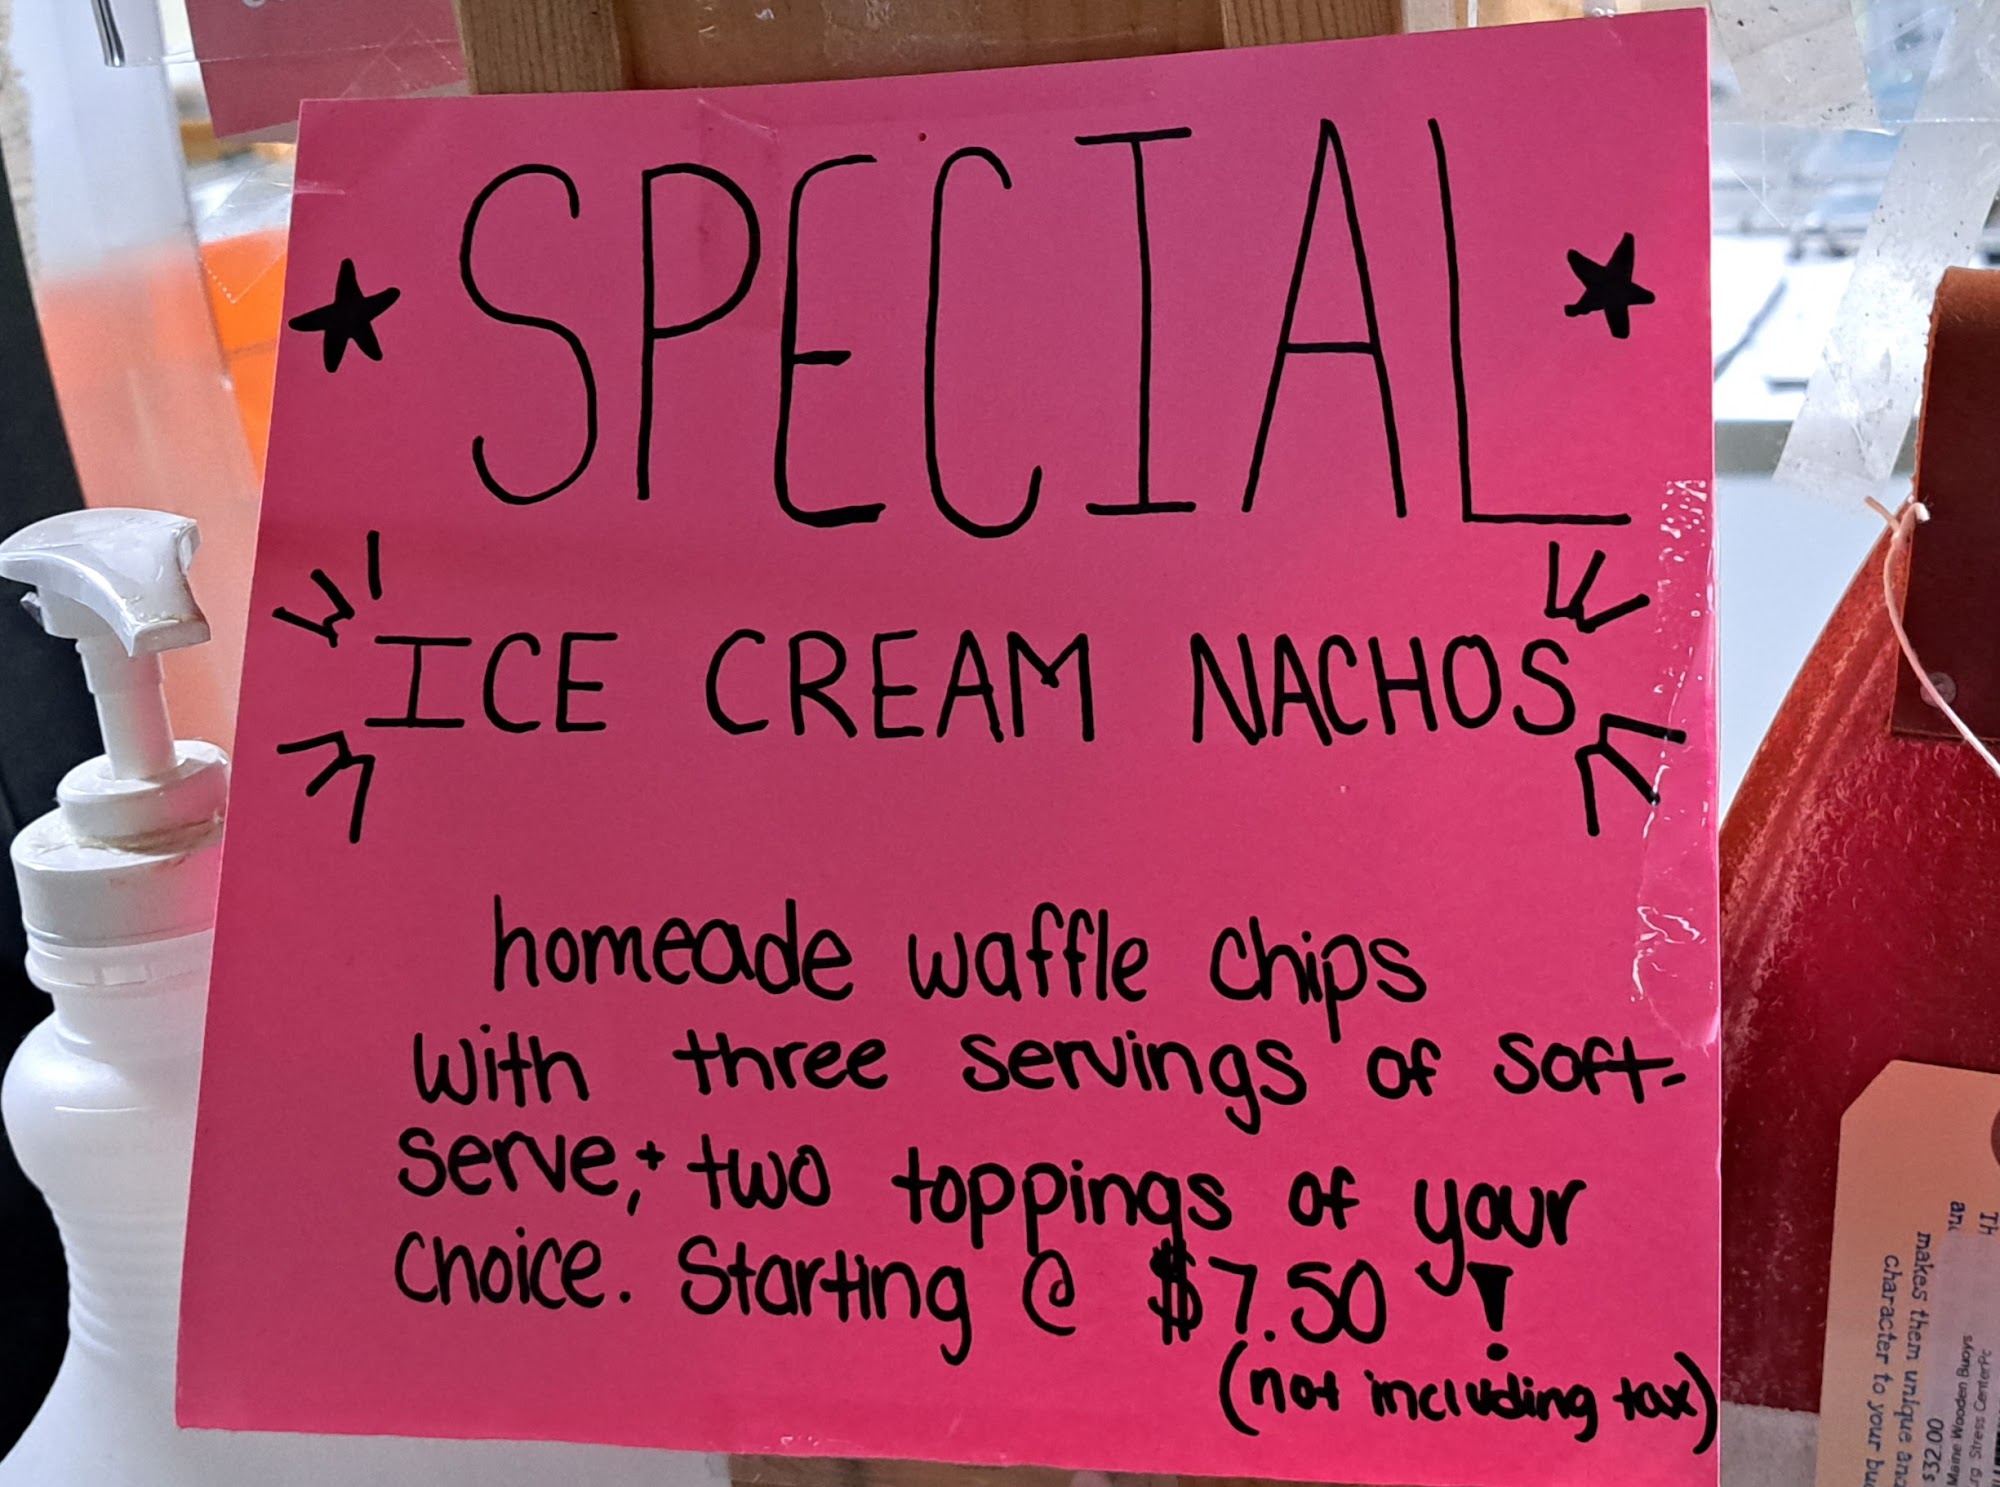 SPECIAL
ICE CREAM NACHOS
homeade waffle chips
with three servings of soft-
serve, + two toppings of your
choice. Starting @ $7.50!
(not including tax)
Th
an
makes them unique and
character to your bu
$32.00
Maine Wooden Buoys
rg Stress CenterPc